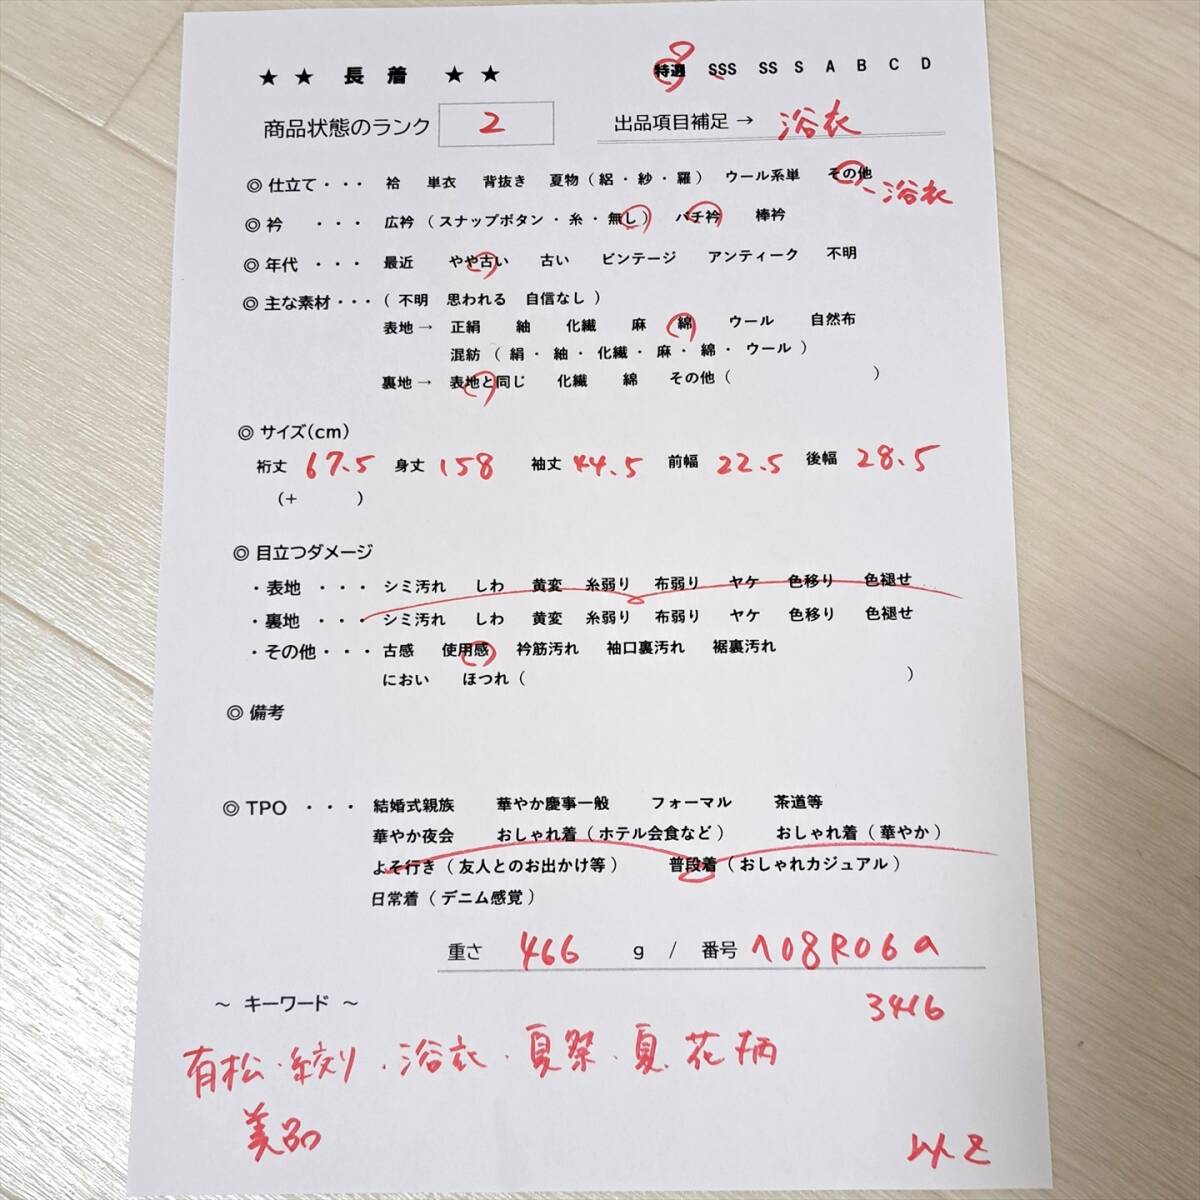 ★ ★ 長 着 ★ ★ 特選 SSS SS S A B C D
商品状態のランク 2 出品項目補足 → 浴衣
◎ 仕立て ・・・ 袷 単衣 背抜き 夏物 ( 絽 ・ 紗 ・ 羅 ) ウール系単 その他
浴衣
◎ 衿 ・・・ 広衿 ( スナップボタン ・ 糸 ・ 無し ) バチ衿 棒衿
◎ 年代 ・・・ 最近 やや古い 古い ビンテージ アンティーク 不明
◎ 主な素材 ・・・ ( 不明 思われる 自信なし )
表地 → 正絹 紬 化繊 麻 綿 ウール 自然布
混紡 ( 絹 ・ 紬 ・ 化繊 ・ 麻 ・ 綿 ・ ウール )
裏地 → 表地と同じ 化繊 綿 その他 ( )
◎ サイズ(cm)
裄丈 67.5 身丈 158 袖丈 44.5 前幅 22.5 後幅 28.5
(+ )
◎ 目立つダメージ
・ 表地 ・・・ シミ汚れ しわ 黄変 糸弱り 布弱り ヤケ 色移り 色褪せ
・ 裏地 ・・・ シミ汚れ しわ 黄変 糸弱り 布弱り ヤケ 色移り 色褪せ
・ その他 ・・・ 古感 使用感 衿筋汚れ 袖口裏汚れ 裾裏汚れ
におい ほつれ ( )
◎ 備考
◎ TPO ・・・ 結婚式親族 華やか慶事一般 フォーマル 茶道等
華やか夜会 おしゃれ着 ( ホテル会食など ) おしゃれ着 ( 華やか )
よそ行き ( 友人とのお出かけ等 ) 普段着 ( おしゃれカジュアル )
日常着 ( デニム感覚 )
重さ 466 g / 番号 108R06a
～ キーワード ～ 3416
有松・絞り・浴衣・夏祭・夏 花柄
美品